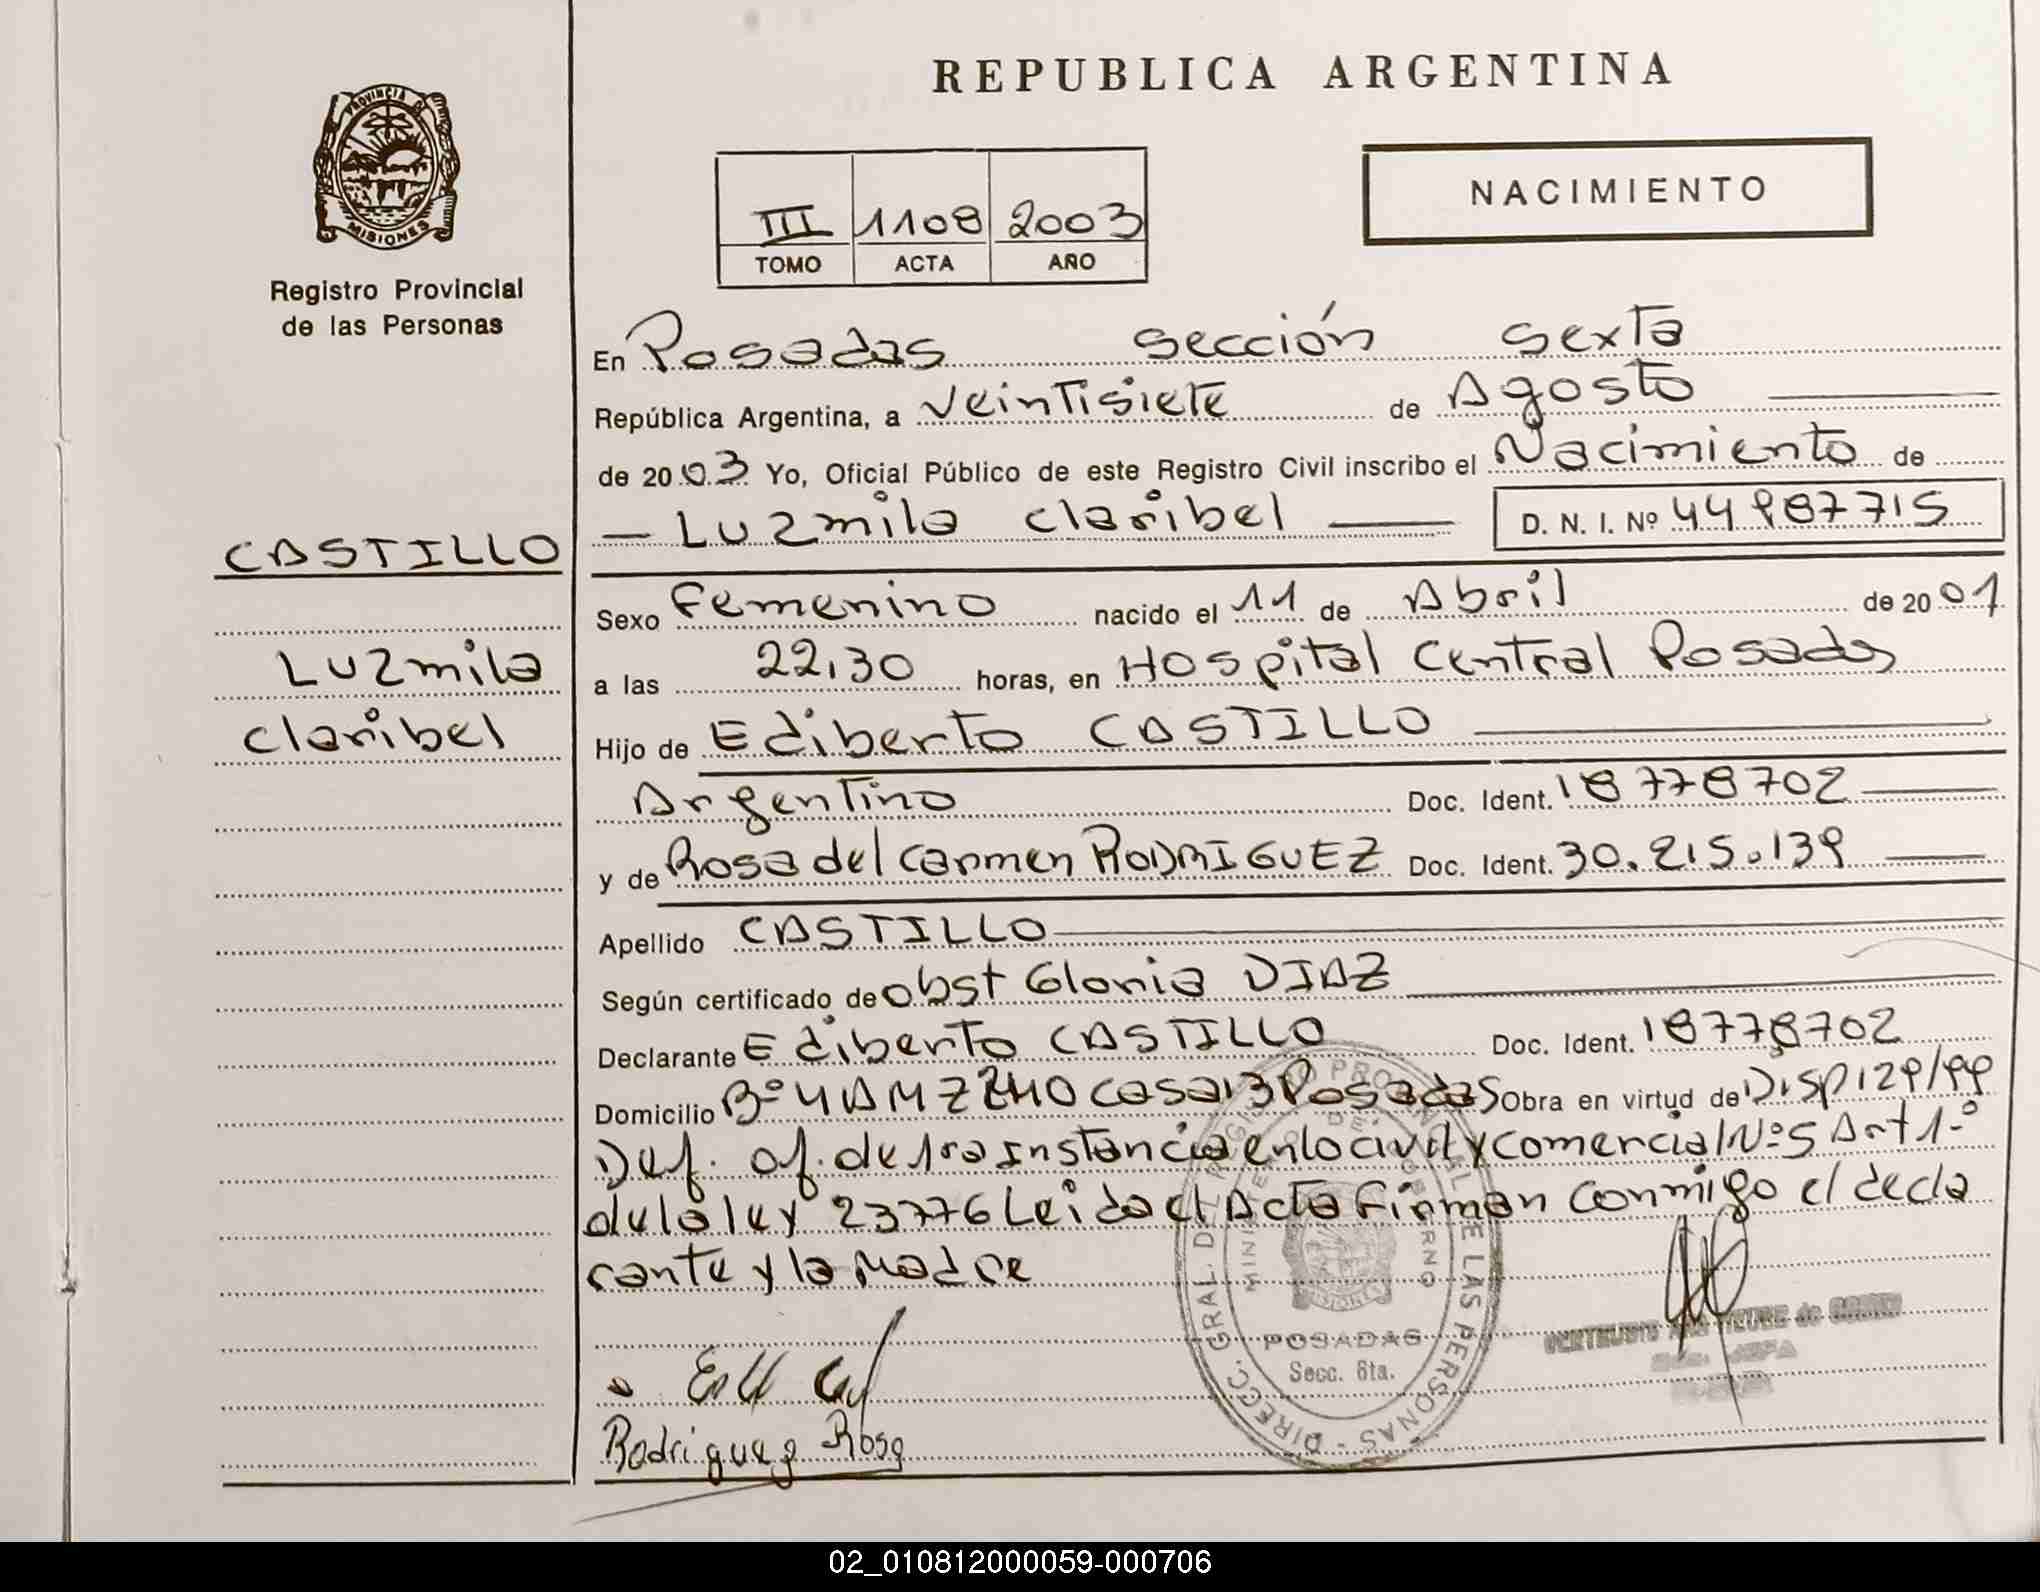 PROVINCIA DE
MISIONES
Registro Provincial
de las Personas
REPUBLICA ARGENTINA
NACIMIENTO
III 1108 2003
TOMO ACTA AÑO
En Posadas sección sexta
República Argentina, a veintisiete de Agosto
de 2003 Yo, Oficial Público de este Registro Civil inscribo el Nacimiento de
CASTILLO
Luzmila
claribel
— Luzmila claribel — D. N. I. Nº 44987715
Sexo femenino nacido el 11 de Abril de 2001
a las 22,30 horas, en Hospital Central Posadas
Hijo de Ediberto CASTILLO
Argentino Doc. Ident. 18778702
y de Rosa del carmen RODRIGUEZ Doc. Ident. 30.215.139
Apellido CASTILLO
Según certificado de obst Gloria DIAZ
Declarante Ediberto CASTILLO Doc. Ident. 18778702
Domicilio Bº Casa 13 Posadas Obra en virtud de Disp 129/99
Def. of. de 1ra instancia en lo civil y comercial Nº 5 Art 1º
de la ley 23776 Leida el Acta firman conmigo el decla
rante y la Madre
Rodriguez Rosa
DIRECC. GRAL. DEL REGISTRO PROVINCIAL DE LAS PERSONAS
MINISTERIO DE GOBIERNO
MISIONES
POSADAS
Secc. 6ta.
02_010812000059-000706